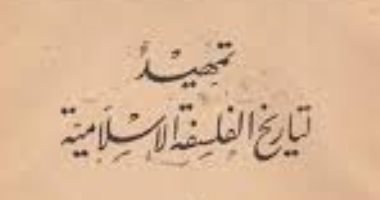 تمهيد
لتاريخ الفلسفة الاسلامية